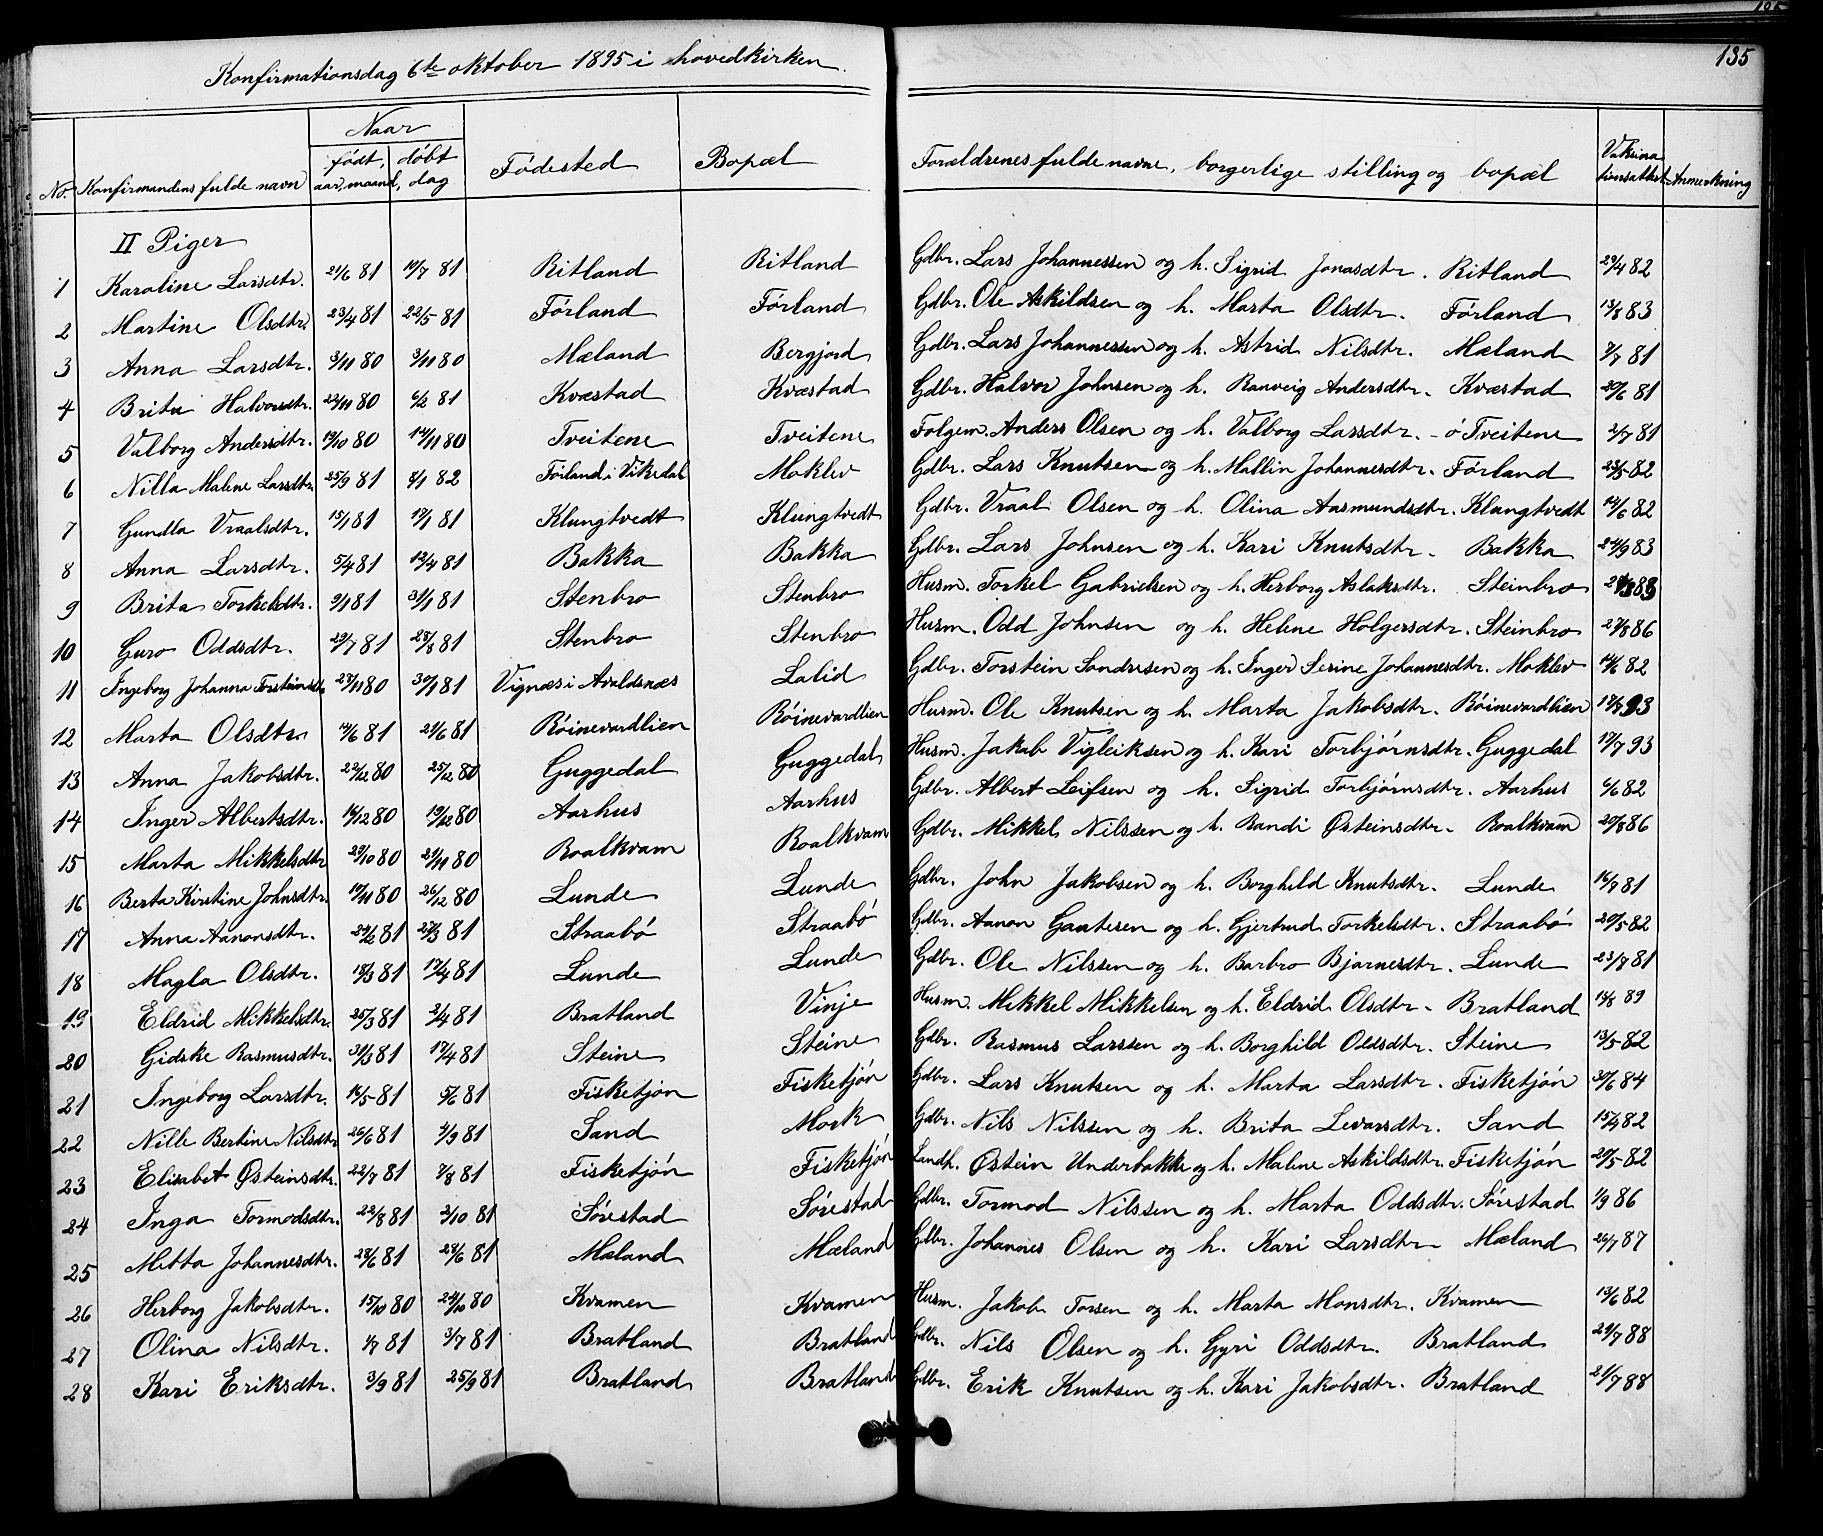 135
Konfirmationsdag 6te oktober 1895 i hovedkirken.
No. Konfirmandens fulde navn Naar født, døbt aar, maand, dag Fødested Bopæl Forældrenes fulde navne, borgerlige stilling og bopæl Vaksinationsattest Anmerkning
II Piger
1 Karoline Larsdtr. 21/6 81 17/7 81 Ritland Ritland Gdbr. Lars Johannessen og h. Sigrid Jonasdtr. Ritland 29/4 82
2 Martine Olsdtr. 23/4 81 22/5 81 Førland Førland Gdbr. Ole Askildsen og h. Marta Olsdtr. Førland 13/8 83
3 Anna Larsdtr. 3/11 80 3/11 80 Mæland Bergjord Gdbr. Lars Johannessen og h. Astrid Nilsdtr. Mæland 7/7 81
4 Brita Halvorsdtr. 22/11 80 6/2 81 Kvæstad Kvæstad Gdbr. Halvor Johnsen og h. Ranveig Andersdtr. Kvæstad 20/6 81
5 Valborg Andersdtr. 19/10 80 14/11 80 Tveitene Tveitene Følgem. Anders Olsen og h. Valborg Larsdtr. - ø Tveitene 2/7 81
6 Nilla Malene Larsdtr. 25/9 81 8/1 82 Førland i Vikedal Moklev Gdbr. Lars Knutsen og h. Mallin Johannesdtr. Førland 23/5 82
7 Gundla Vraalsdtr. 15/1 81 17/1 81 Klungtvedt Klungtvedt Gdbr. Vraal Olsen og h. Olina Aasmundsdtr. Klungtvedt 14/6 82
8 Anna Larsdtr. 5/4 81 12/4 81 Bakka Bakka Gdbr. Lars Johnsen og h. Kari Knutsdtr. Bakka 24/9 83
9 Brita Torkelsdtr. 9/1 81 31/1 81 Stenbro Stenbro Husm. Torkel Gabrielsen og h. Herborg Aslaksdtr. Steinbro
10 Guro Oddsdtr. 29/7 81 28/8 81 Stenbro Stenbro Husm. Odd Johnsen og h. Helene Holgersdtr. Steinbro 27/8 86
11 Ingeborg Johanna Torsteinsdtr. 27/11 80 30/1 81 Vignæs i Avaldsnæs Lalid Gdbr. Torstein Sondresen og h. Inger Serine Johannesdtr. Moklev 14/6 82
12 Marta Olsdtr. 14/6 81 29/6 81 Røinevardlien Røinevardlien Husm. Ole Knutsen og h. Marta Jakobsdtr. Røinevardlien 18/8 93
13 Anna Jakobsdtr. 22/12 80 25/12 80 Guggedal Guggedal Husm. Jakob Vigleiksen og h. Kari Torbjørnsdtr. Guggedal 17/7 93
14 Inger Albertsdtr. 16/12 80 19/12 80 Aarhus Aarhus Gdbr. Albert Leifsen og h. Sigrid Torbjørnsdtr. Aarhus 6/6 82
15 Marta Mikkelsdtr. 29/10 80 21/11 80 Roalkvam Roalkvam Gdbr. Mikkel Nilssen og h. Randi Østeinsdtr. Roalkvam 29/8 86
16 Berta Kirstine Johnsdtr. 19/11 80 26/12 80 Lunde Lunde Gdbr. John Jakobsen og h. Borghild Knutsdtr. Lunde 16/7 81
17 Anna Aanonsdtr. 24/2 81 27/3 81 Straabø Straabø Gdbr. Aanon Gautesen og h. Gjertrud Torkelsdtr. Straabø 20/5 82
18 Magla Olsdtr. 18/3 81 17/4 81 Lunde Lunde Gdbr. Ole Nilssen og h. Barbro Bjarnesdtr. Lunde 23/7 81
19 Eldrid Mikkelsdtr. 25/3 81 3/4 81 Bratland Vinje Husm. Mikkel Mikkelsen og h. Eldrid Olsdtr. Bratland 14/8 89
20 Gidske Rasmusdtr. 31/3 81 17/4 81 Steine Steine Gdbr. Rasmus Larssen og h. Borghild Oddsdtr. Steine 13/5 82
21 Ingeborg Larsdtr. 16/5 81 5/6 81 Fisketjøn Fisketjøn Gdbr. Lars Knutsen og h. Marta Larsdtr. Fisketjøn 30/6 84
22 Nille Bertine Nilsdtr. 26/6 81 4/9 81 Sand Mork Gdbr. Nils Nilssen og h. Brita Levarsdtr. Sand 15/4 82
23 Elisabet Østeinsdtr. 22/7 81 7/8 81 Fisketjøn Fisketjøn Landh. Østein Underbakke og h. Malene Askildsdtr. Fisketjøn 20/5 82
24 Inga Tormodsdtr. 22/8 81 2/10 81 Sørestad Sørestad Gdbr. Tormod Nilssen og h. Marta Oddsdtr. Sørestad 1/9 86
25 Metta Johannesdtr. 28/6 81 28/6 81 Mæland Mæland Gdbr. Johannes Olsen og h. Kari Larsdtr. Mæland 26/7 87
26 Herborg Jakobsdtr. 15/10 80 24/10 80 Kvamen Kvamen Husm. Jakob Torsen og h. Marta Monsdtr. Kvamen 13/6 82
27 Olina Nilsdtr. 1/7 81 3/7 81 Bratland Bratland Gdbr. Nils Olsen og h. Gyri Oddsdtr. Bratland 21/7 88
28 Kari Eriksdtr. 3/9 81 25/9 81 Bratland Bratland Gdbr. Erik Knutsen og h. Kari Jakobsdtr. Bratland 21/7 88